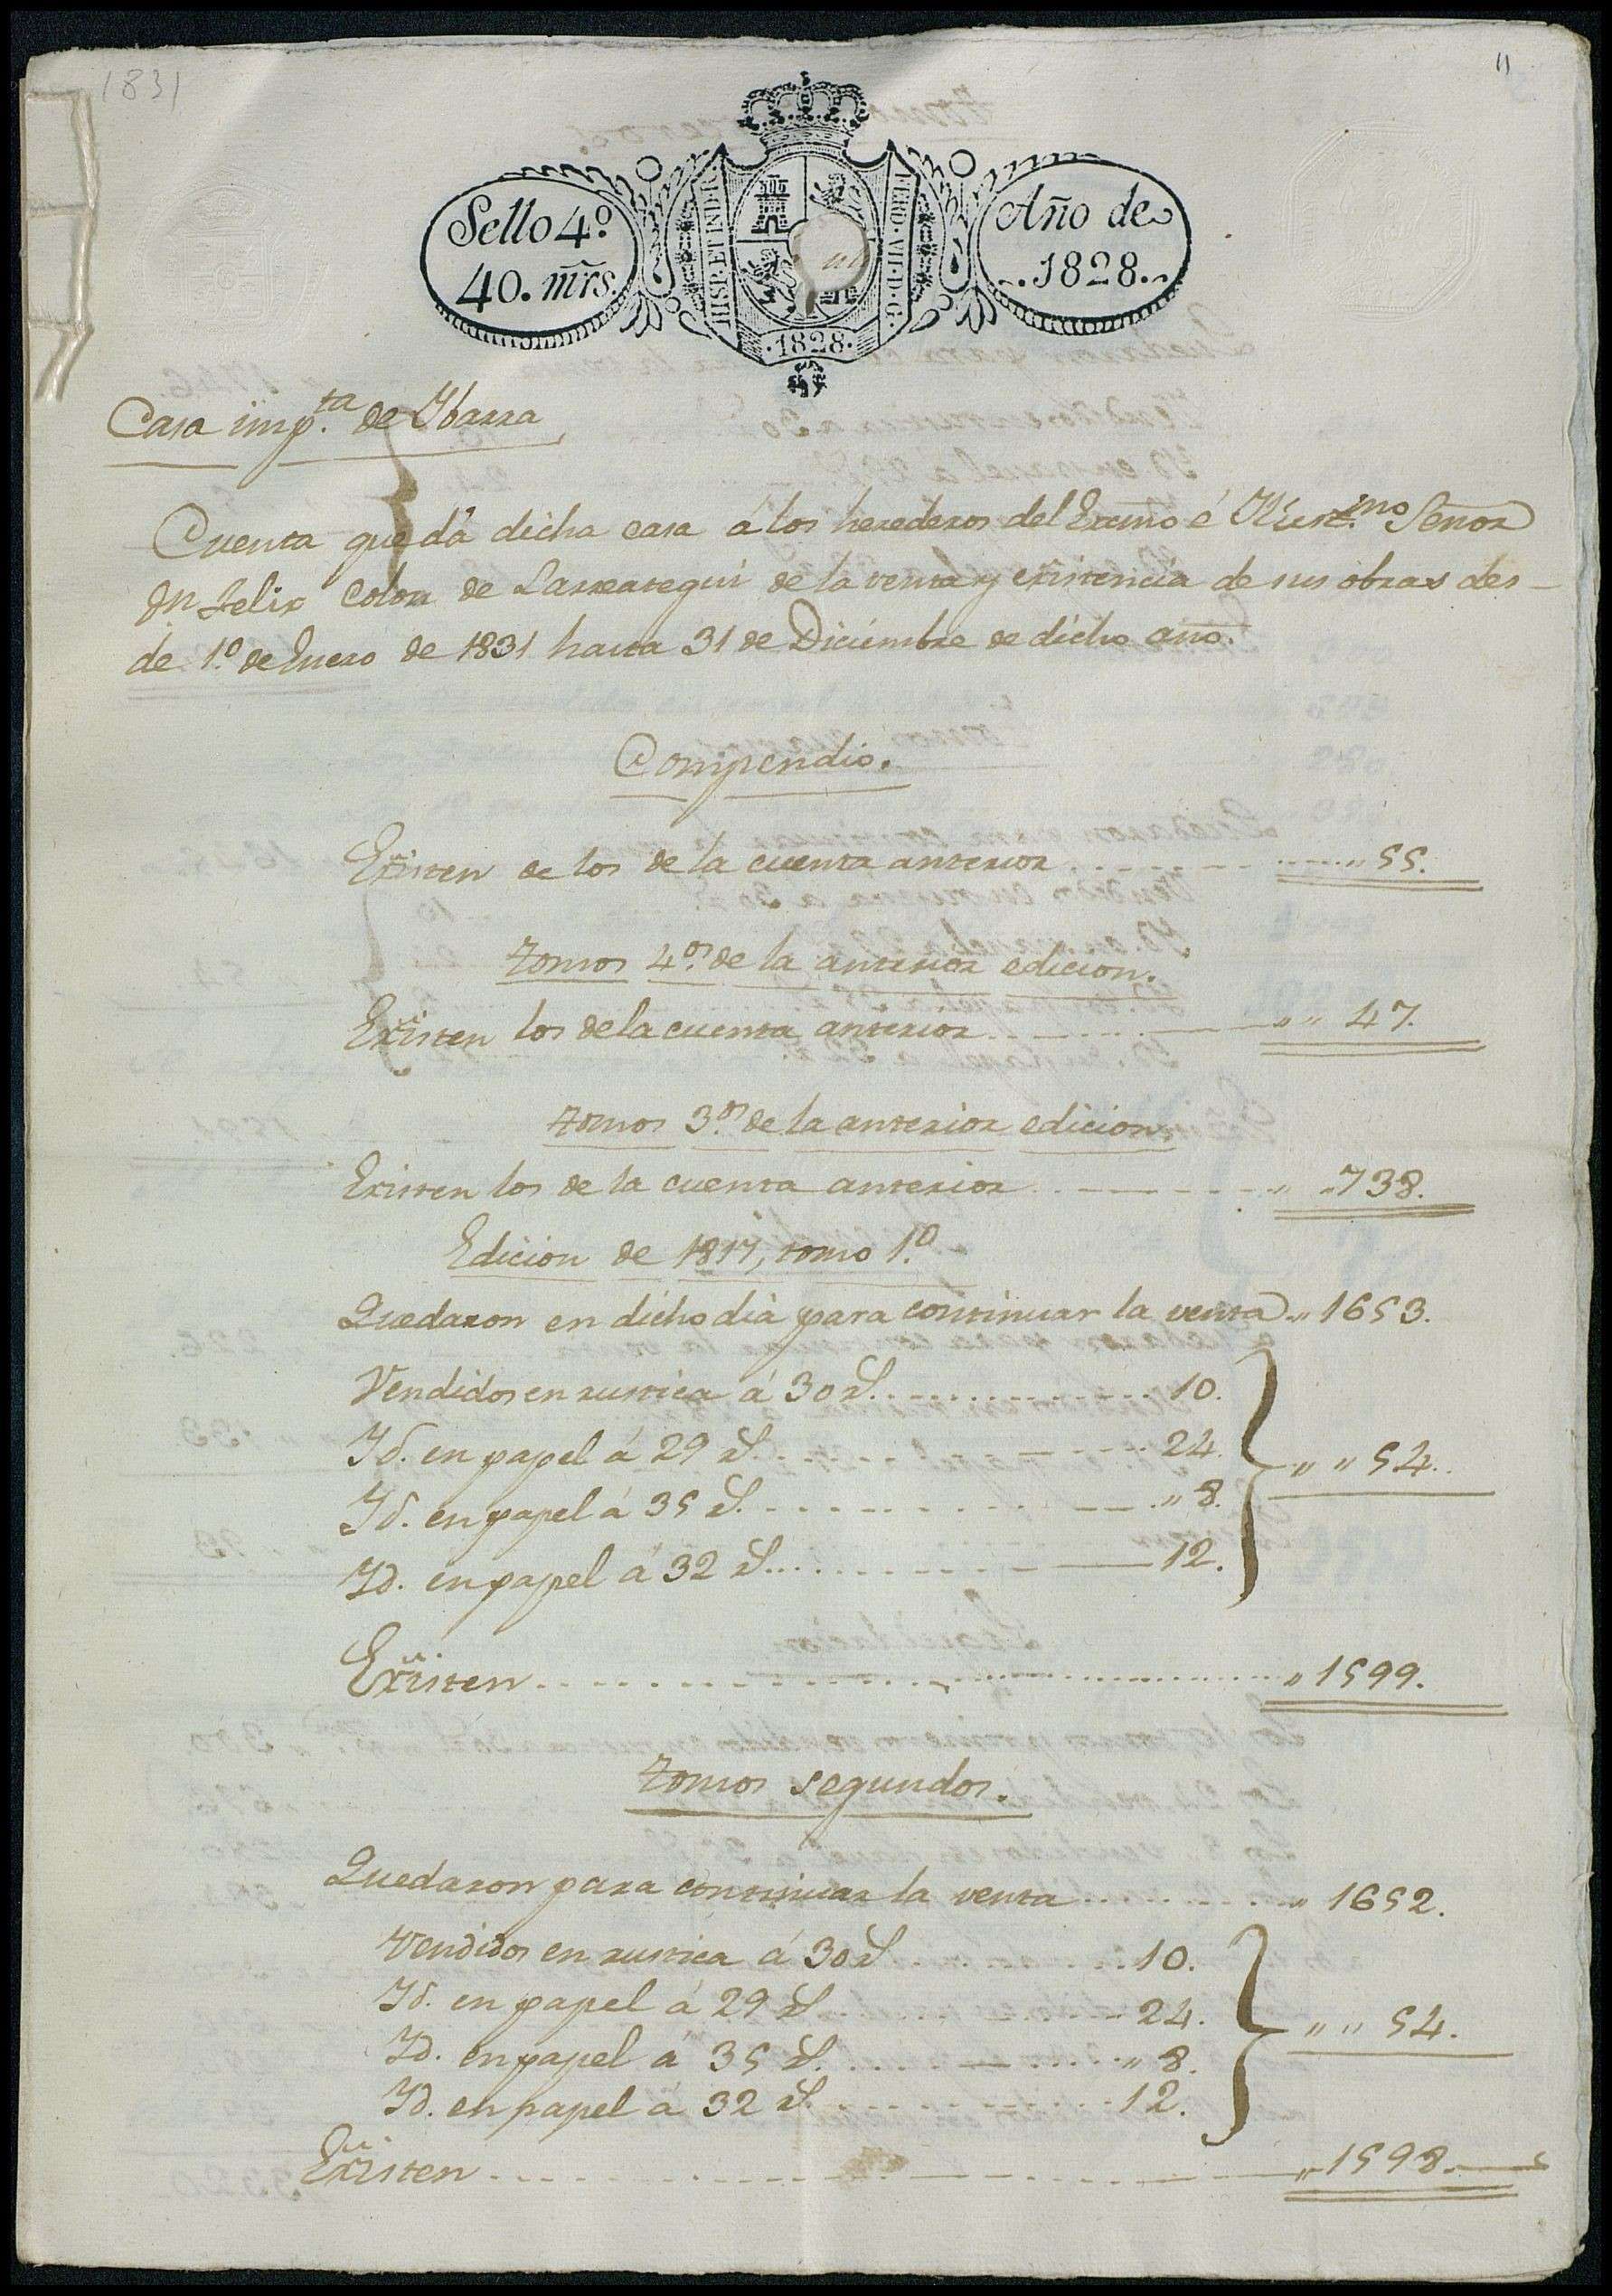 1831
11
Sello 4º
40. mrs.
HISP. ET IND. R.
FERD. VII. D. G.
1828.
Año de
1828.
Casa imp.ta de Ybarra
Cuenta que dá dicha casa á los herederos del Exmo é Yllust.mo Señor
Dn Felix Colon de Larreategui de la venta y existencia de sus obras des-
de 1º de Enero de 1831 hasta 31 de Diciembre de dicho año.
Compendio.
Existen de los de la cuenta anterior " 55.
tomos 4.os de la anterior edicion.
Existen los de la cuenta anterior " " 47.
tomos 3.os de la anterior edicion.
Existen los de la cuenta anterior " " 738.
Edicion de 1817, tomo 1º
Quedaron en dicho dia para continuar la venta " 1653.
Vendidos en rustica á 30 rs. 10.
Yd. en papel á 29 rs. 24.
Yd. en papel á 35 rs. " 8.
Yd. en papel á 32 rs. 12.
" " 54.
Existen " 1599.
tomos segundos.
Quedaron para continuar la venta " 1652.
Vendidos en rustica á 30 rs 10.
Yd. en papel á 29 rs 24.
Yd. en papel á 35 rs. " 8.
Yd. en papel á 32 rs. 12.
" " 54.
Existen " 1598.